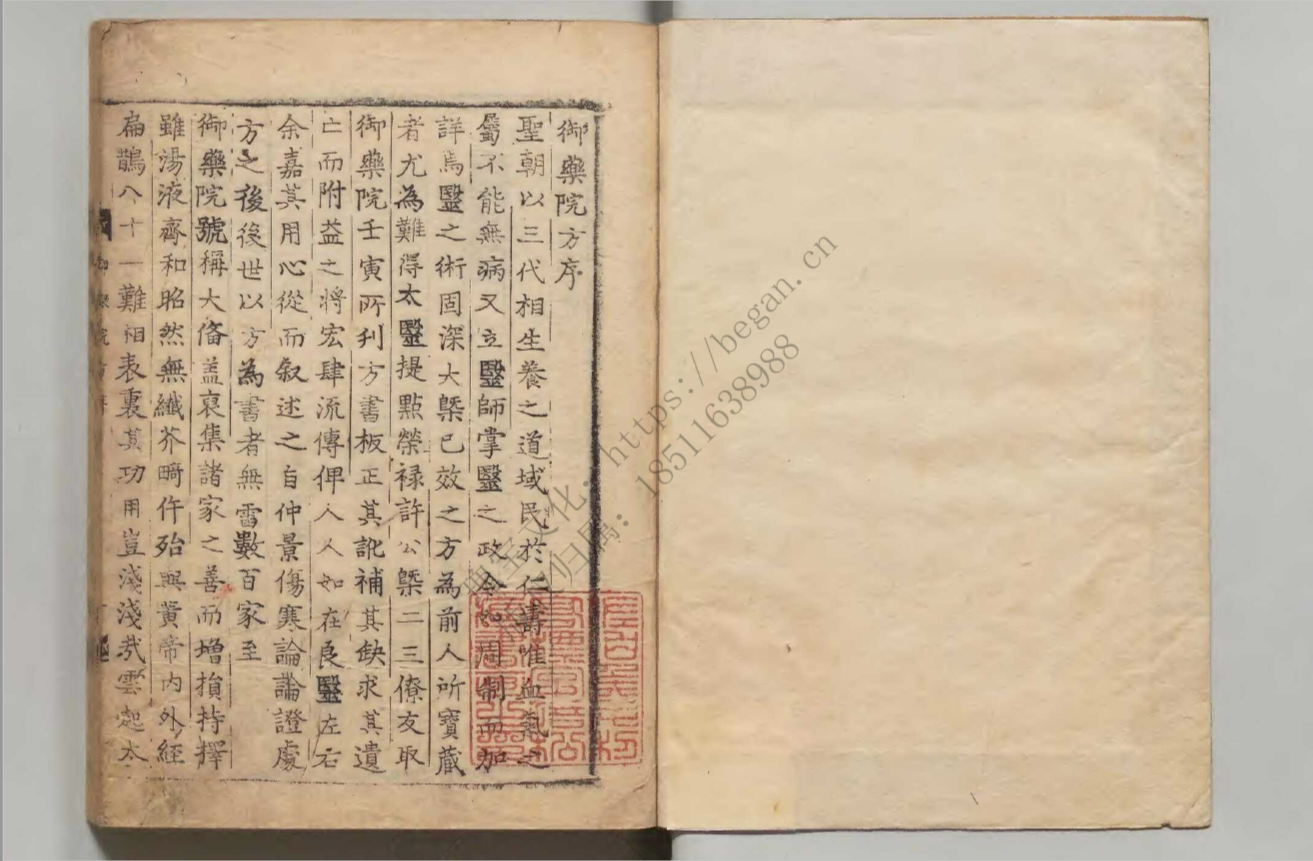 御藥院方序
聖朝以三代相生養之道域民於仁壽唯血氣之
屬不能無病又立毉師掌毉之政令如周制而加
詳焉毉之術固深大槩已效之方為前人所寶藏
者尤為難得太毉提點榮祿許公槩二三僚友取
御藥院壬寅所刋方書板正其訛補其缺求其遺
亡而附益之將宏肆流傳俾人人如在良毉左右
余嘉其用心從而叙述之自仲景傷寒論論證處
方之後後世以方為書者無雷數百家至
御藥院號稱大俻盖裒集諸家之善而增損持擇
雖湯液齊和昭然無纖芥畸仵殆與黃帝內外經
扁鵲八十一難相表裏其功用豈淺淺㢤雲起太
https://began.cn
18511638988